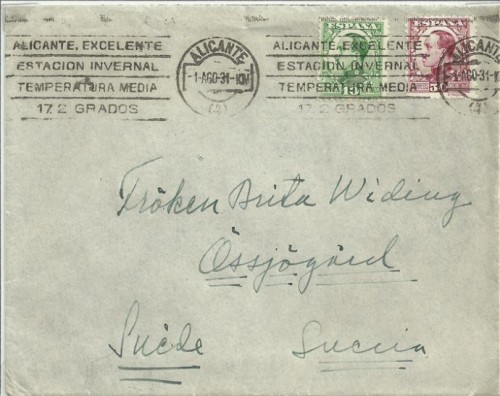 ESPAÑA ESPAÑA
ALICANTE, EXCELENTE
ESTACION INVERNAL
TEMPERATURA MEDIA
17,2 GRADOS
ALICANTE
-1 AGO·31-
(4)
ALICANTE, EXCELENTE
ESTACION INVERNAL
TEMPERATURA MEDIA
17,2 GRADOS
ALICANTE
-1 AGO·31-
(4)
Fröken Brita Widing
Össjögård
Suède Suecia